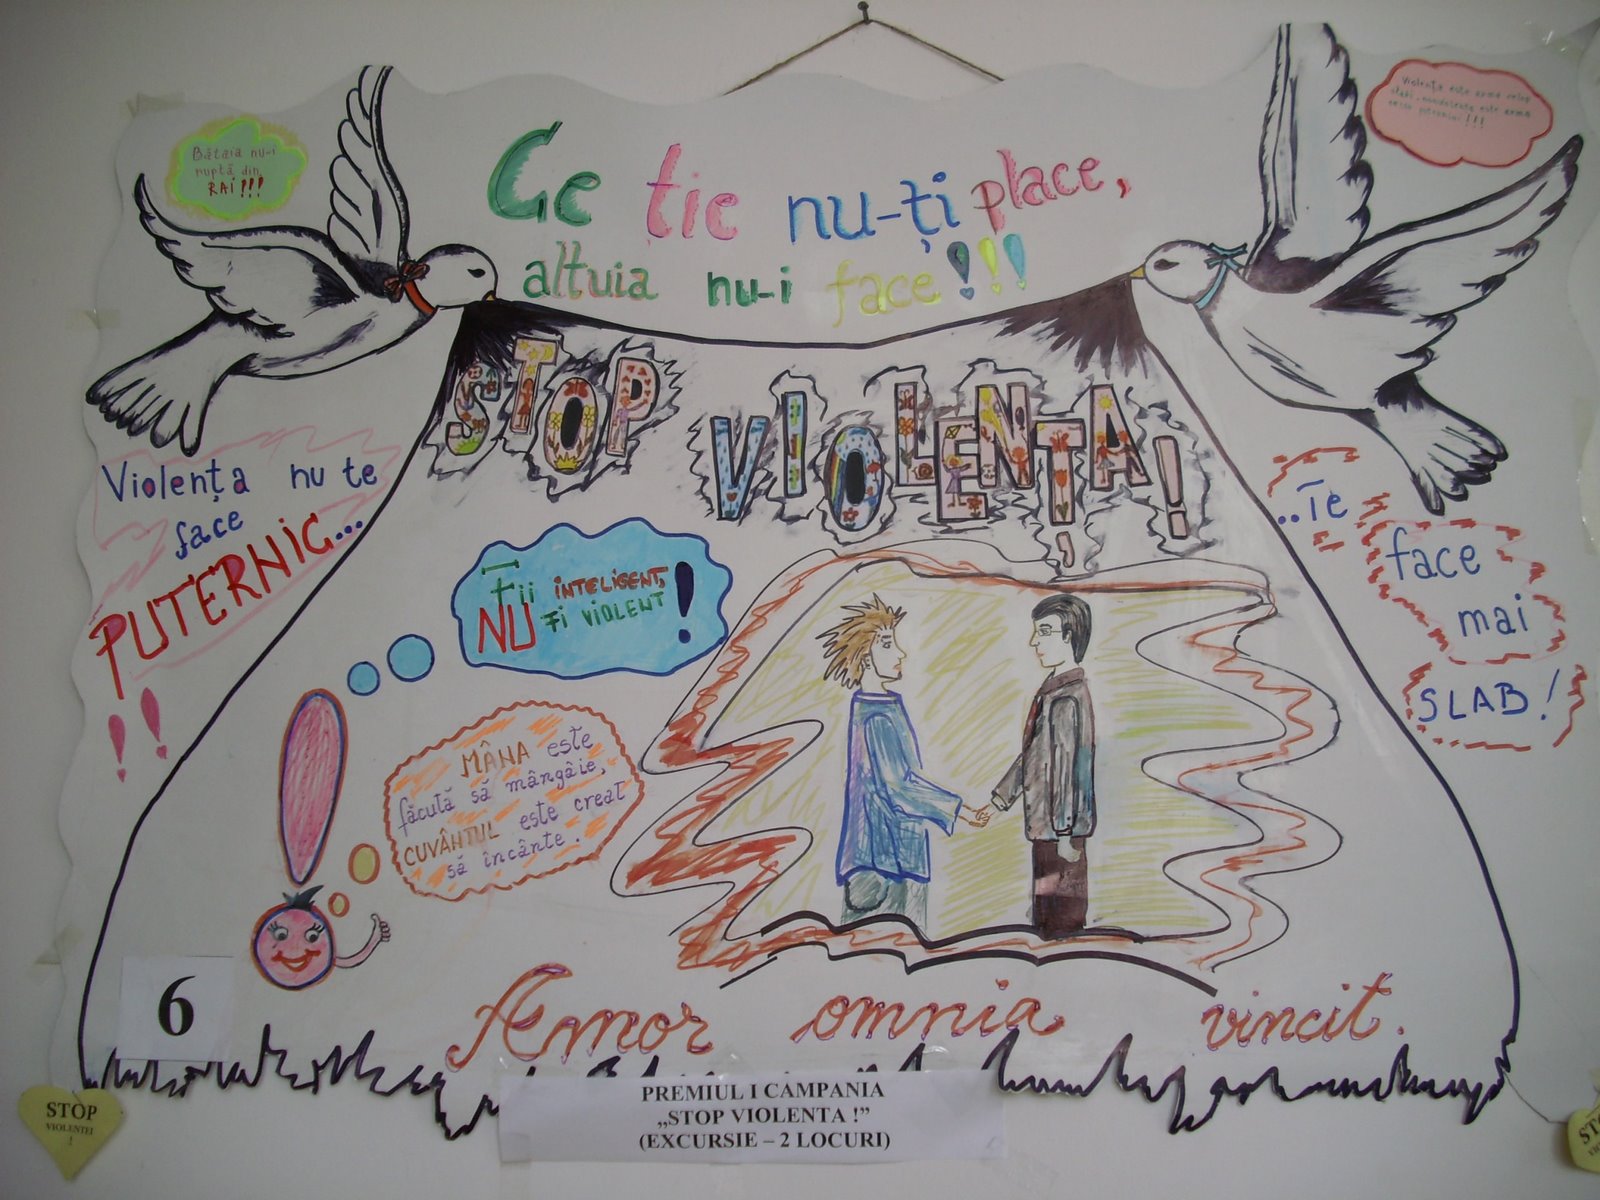 Bătaia nu-i
ruptă din
RAI!!!
Violența este arma celor
slabi, nonviolența este arma
celor puternici!!!
Ce ție nu-ți place,
altuia nu-i face!!!
STOP
VIOLENȚA!
Violența nu te
face
PUTERNIC...
!!
..Te
face
mai
SLAB!
Fii INTELIGENT,
NU Fi VIOLENT!
MÂNA este
făcută să mângâie,
CUVÂNTUL este creat
să încânte.
Amor omnia vincit.
6
STOP
VIOLENTEI
!
PREMIUL I CAMPANIA
„STOP VIOLENTA !”
(EXCURSIE – 2 LOCURI)